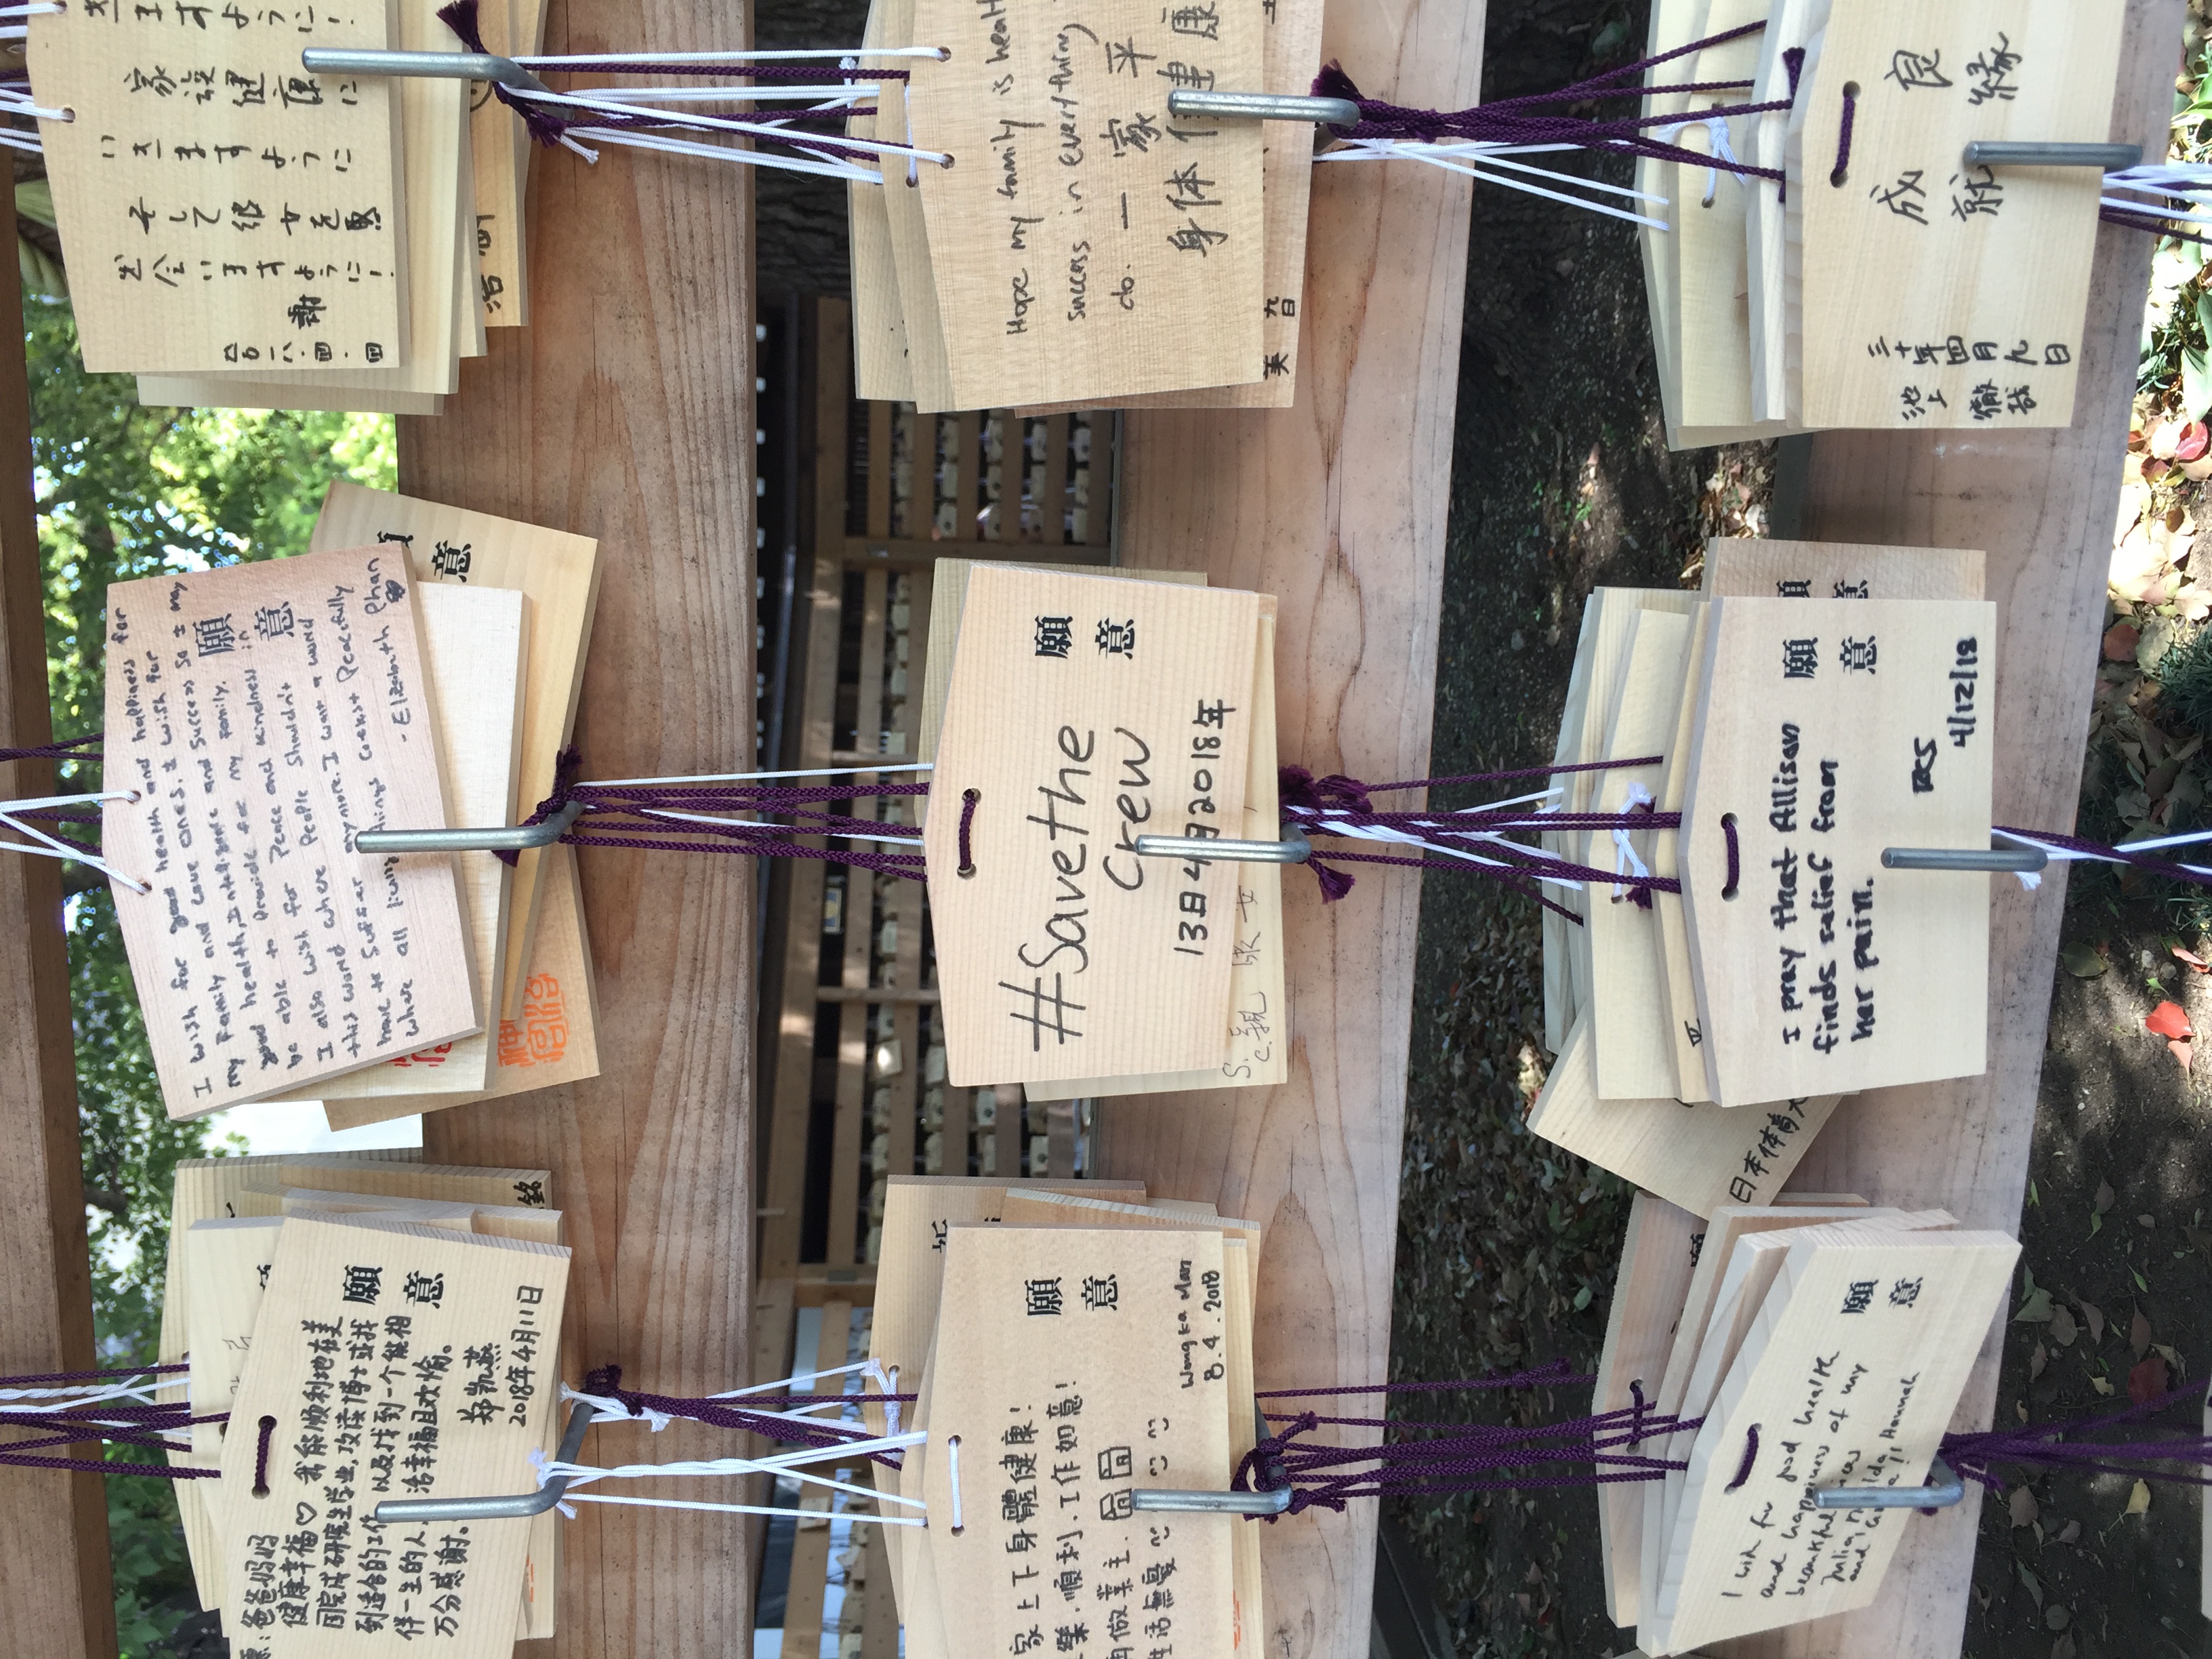 爸爸妈妈
健康幸福♡ 我能顺利地在美
国完成研究生学业,攻读博士或找
到适合的工作 以及找到一个能相
伴一生的人, 活幸福且欢愉。
万分感谢。
郑凯燕
2018年4月11日
願意
銘
I wish for good health and happiness for
my Family and Love ones. I wish for
good health, Intelligence and Success So I may
be able to Provide for my Family.
I also wish for Peace and kindness in
this world where People Shouldn't
have to Suffer anymore. I want a world
where all living things coexist Peacefully
- Elizabeth Phan
願意
意
神宮
きますように!
家族健康に
いきますように
そして彼女を
出会いますように!
二〇一八・四・四
謝
家上下身體健康!
樂.順利.工作如意!
做業主.
生活無憂
Wong Ka Man
8.4.2018
願意
#Savethe
Crew
13日4月2018年
願意
S.
C.親
Hope my family is
success in everything
do. 一家平
身体 健康
美
九日
I wish for good health
and happiness of my
beautiful
Julia, Hannah
and
願意
日本体育大
I pray that Allison
finds relief from
her pain.
4/12/18
願意
良縁
成就
三十年四月九日
池上 徹哉